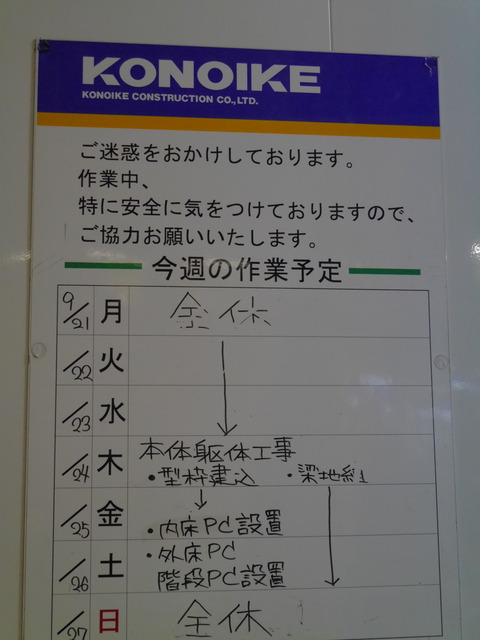 KONOIKE
KONOIKE CONSTRUCTION CO.,LTD.
ご迷惑をおかけしております。
作業中、
特に安全に気をつけておりますので、
ご協力お願いいたします。
今週の作業予定
9/21 月 全休
/22 火
/23 水
/24 木 本体躯体工事
・型枠建込 ・梁地組
/25 金 ・内床PC設置
/26 土 ・外床PC
階段PC設置
/27 日 全休